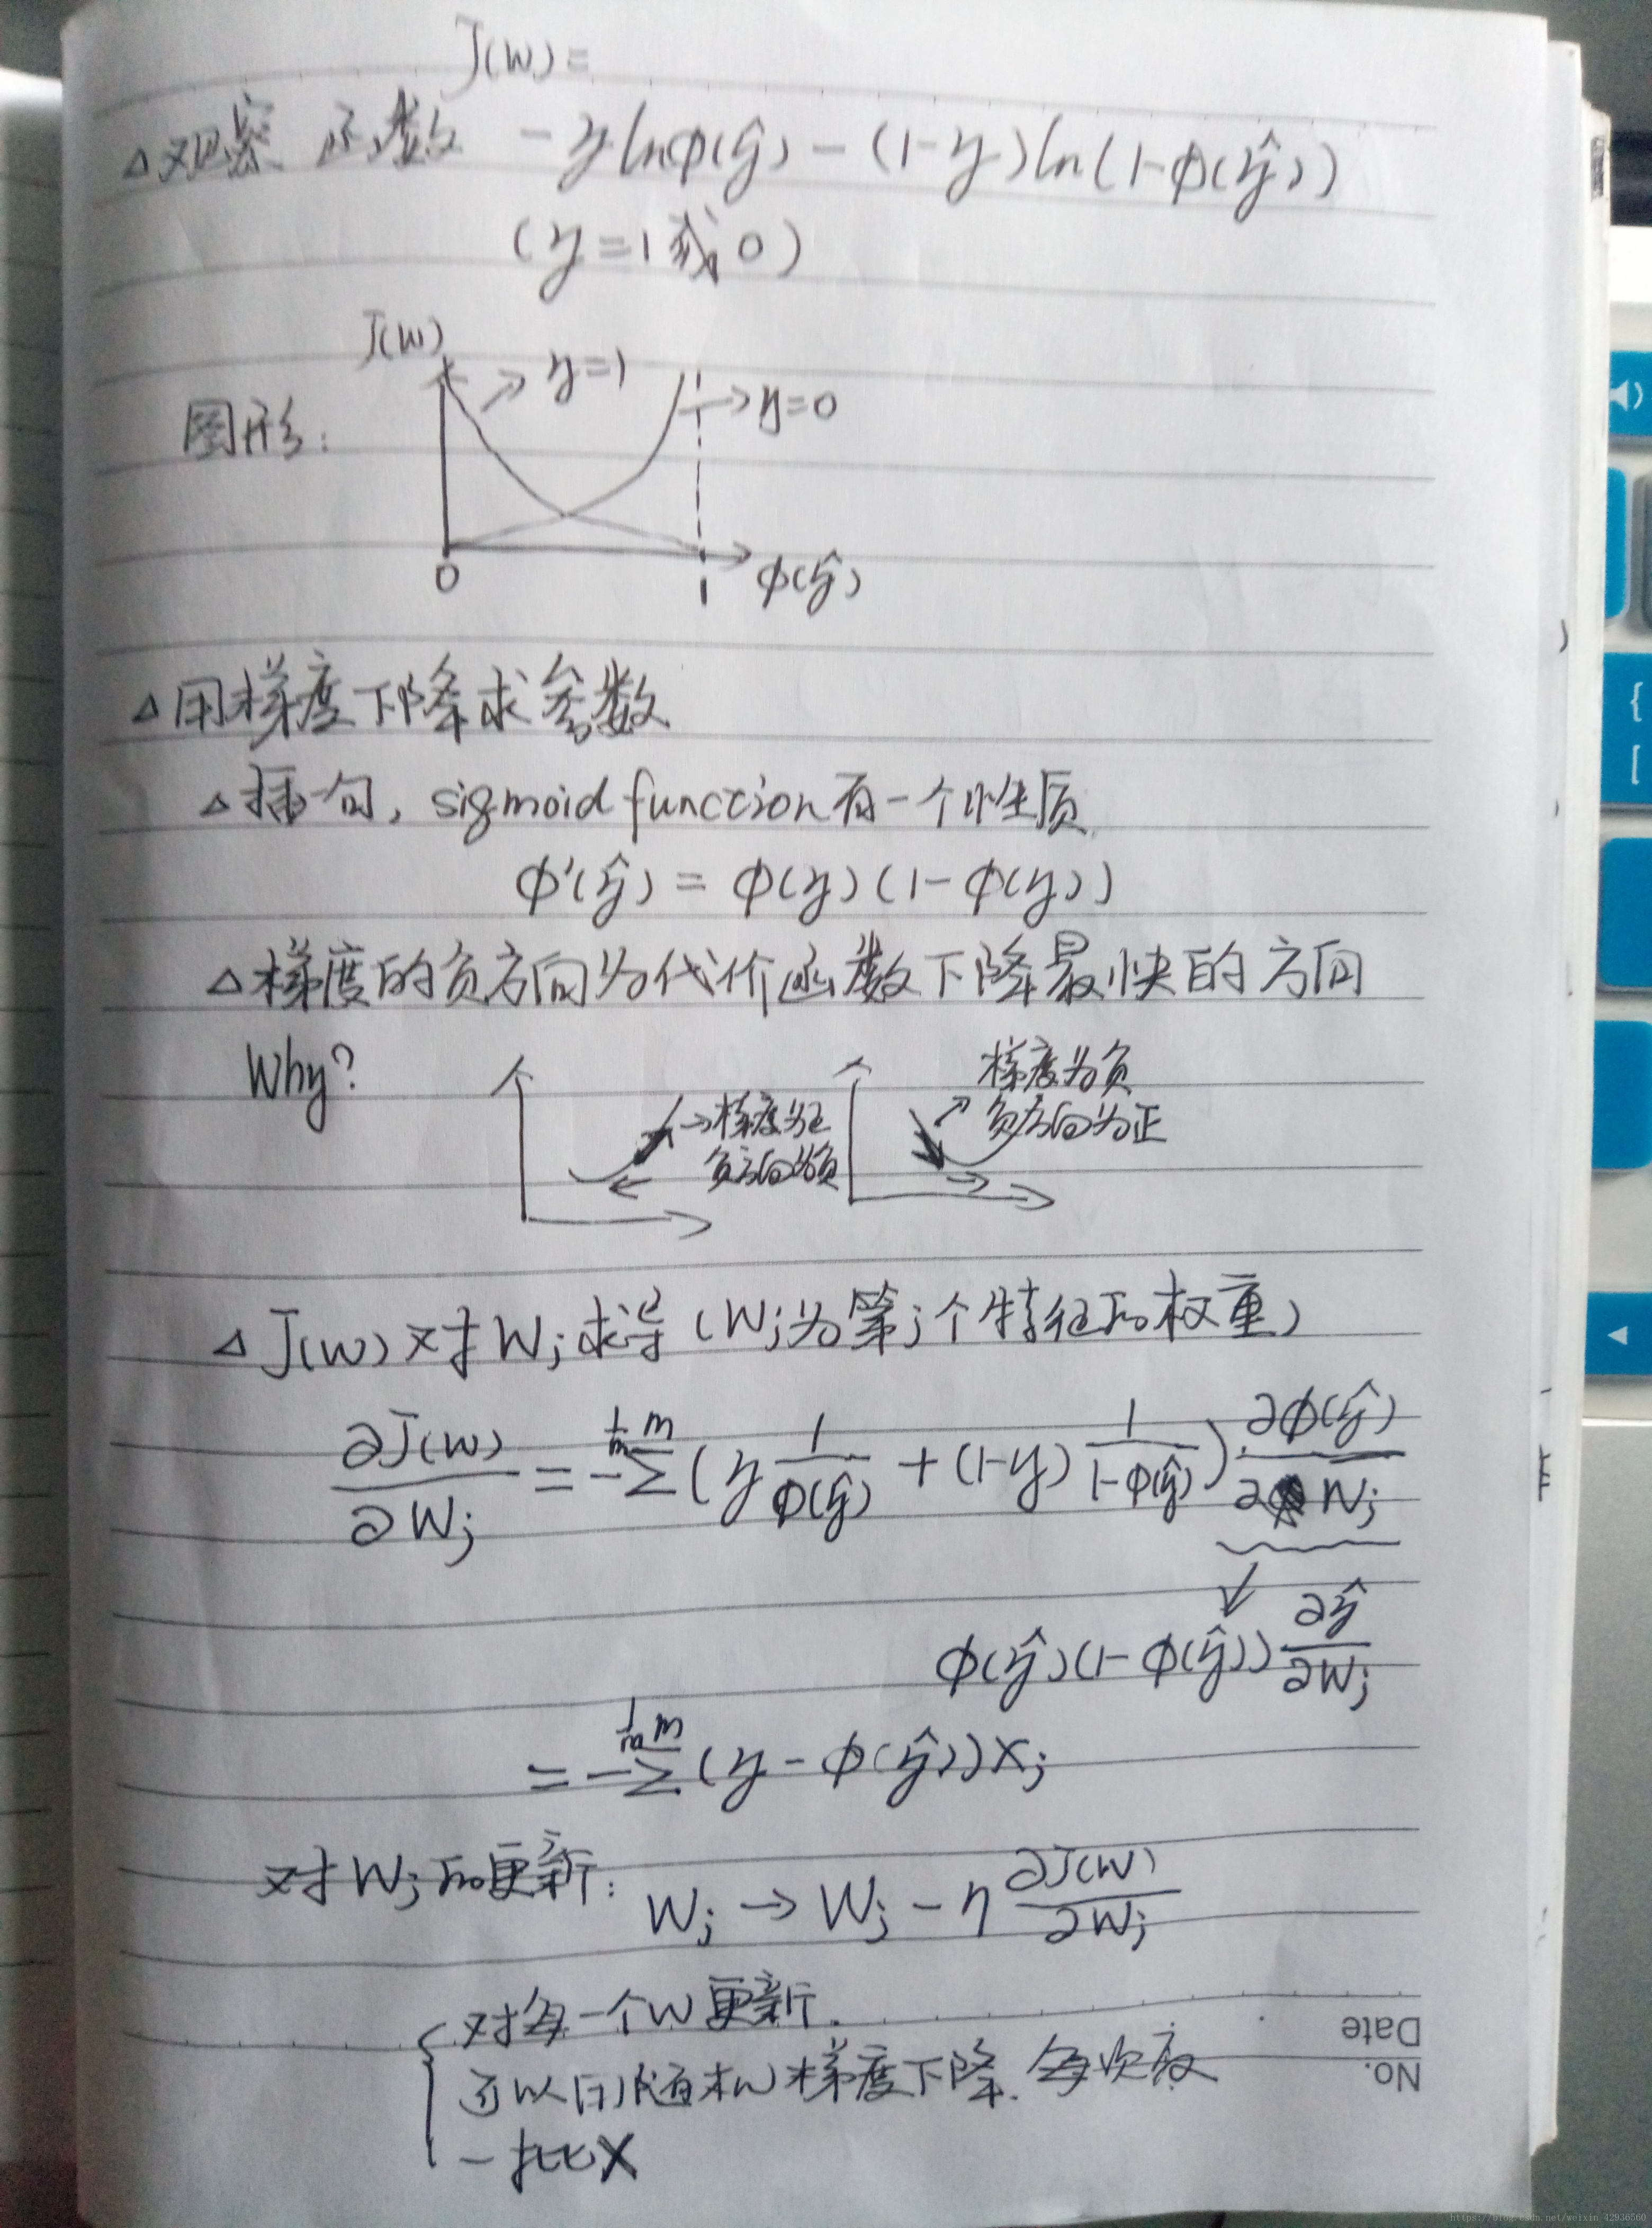 J(w) =
△观察 函数 -y lnφ(ŷ) - (1-y)ln(1-φ(ŷ))
(y=1或0)
J(w)
y=1
y=0
图形:
0
1
φ(ŷ)
△用梯度下降求参数
△插一句, sigmoid function有一个性质
φ'(ŷ) = φ(y)(1-φ(y))
△梯度的负方向为代价函数下降最快的方向
Why?
→梯度为正
负方向为负
梯度为负
负方向为正
△J(w)对Wj求导(Wj为第j个特征的权重)
∂J(w)/∂Wj = -1/m Σ^m (y 1/φ(ŷ) + (1-y) 1/(1-φ(ŷ))) · ∂φ(ŷ)/∂Wj
φ(ŷ)(1-φ(ŷ)) ∂ŷ/∂Wj
= -1/m Σ^m (y-φ(ŷ))Xj
对Wj的更新: Wj → Wj - η ∂J(w)/∂Wj
对每一个W更新.
可以用随机梯度下降.每次取
一批X
Date
No.
https://blog.csdn.net/weixin_42936560